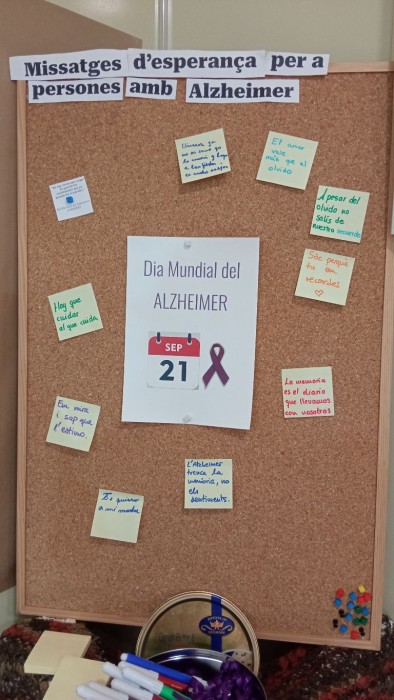 Missatges d'esperança per a
persones amb Alzheimer
El amor
vale
más que el
olvido
A pesar del
olvido no
salís de
nuestro recuerdo
Sóc perquè
tu em
recordes
Dia Mundial del
ALZHEIMER
SEP
21
Hay que
cuidar
al que cuida
La memoria
es el diario
que llevamos
con nosotros
Em mira
i sap que
l'estimo.
L'Alzheimer
trenca la
memòria, no
els
sentiments.
Te quiero
a mi madre